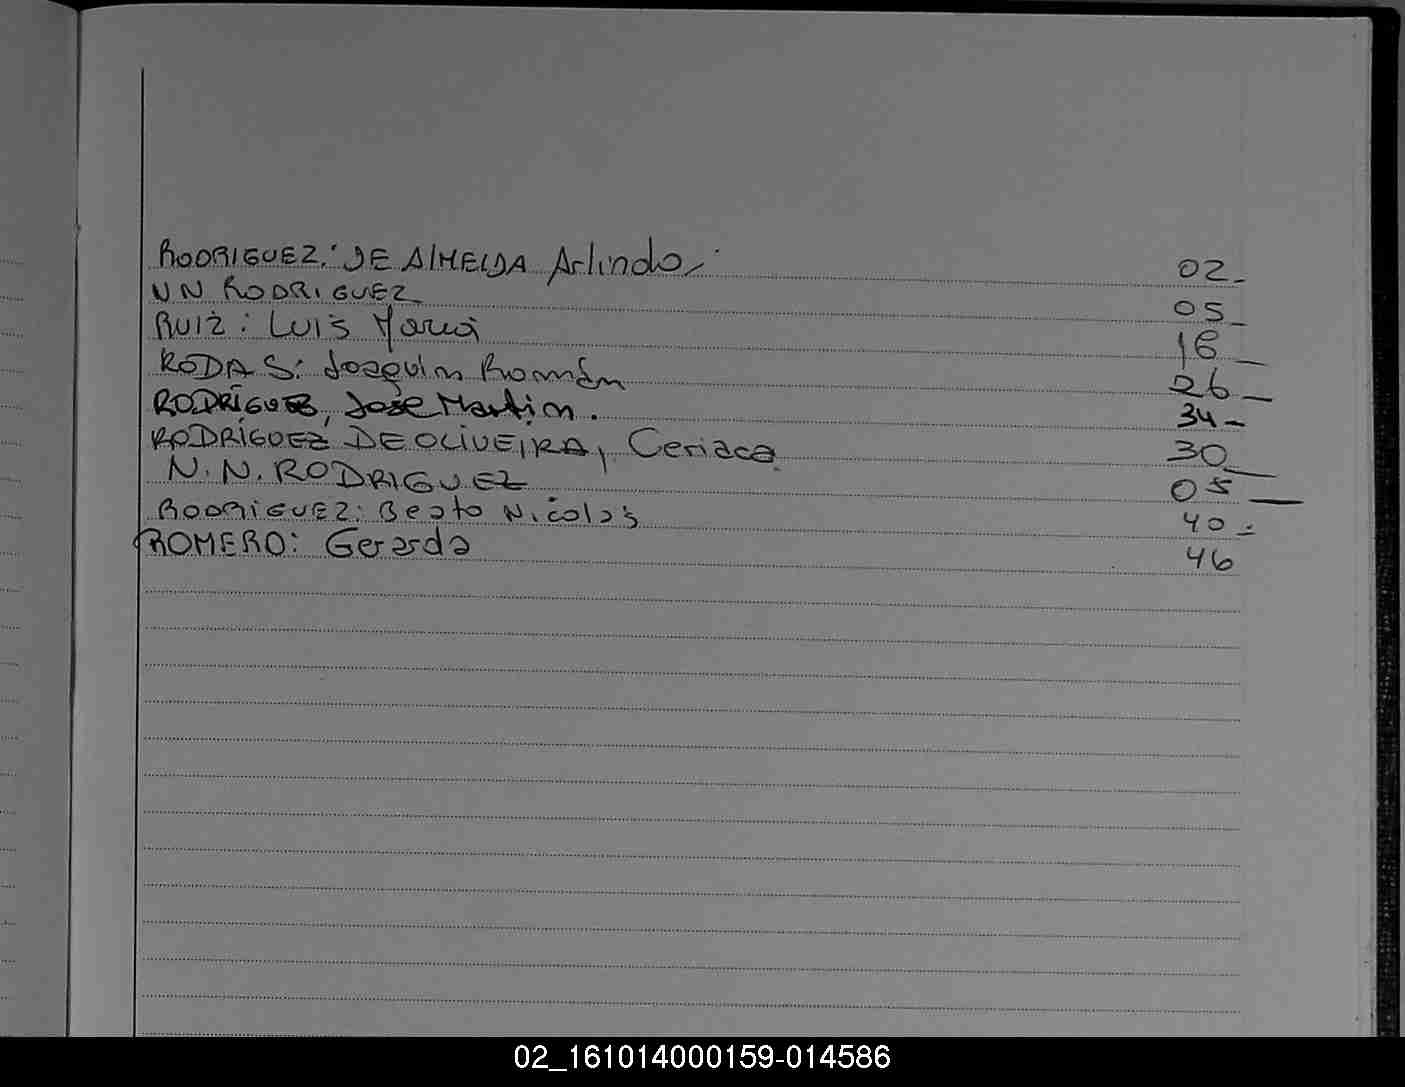 RODRIGUEZ: DE ALMEIDA Arlindo 02-
NN RODRIGUEZ 05-
RUIZ: Luis María 16-
RODAS: Joaquim Román 26-
RODRÍGUEZ, José Martin. 34-
RODRÍGUEZ DE OLIVEIRA, Ceriaca 30-
N.N. RODRIGUEZ 05-
RODRIGUEZ: Beato Nicolás 40-
ROMERO: Gerardo 46
02_161014000159-014586